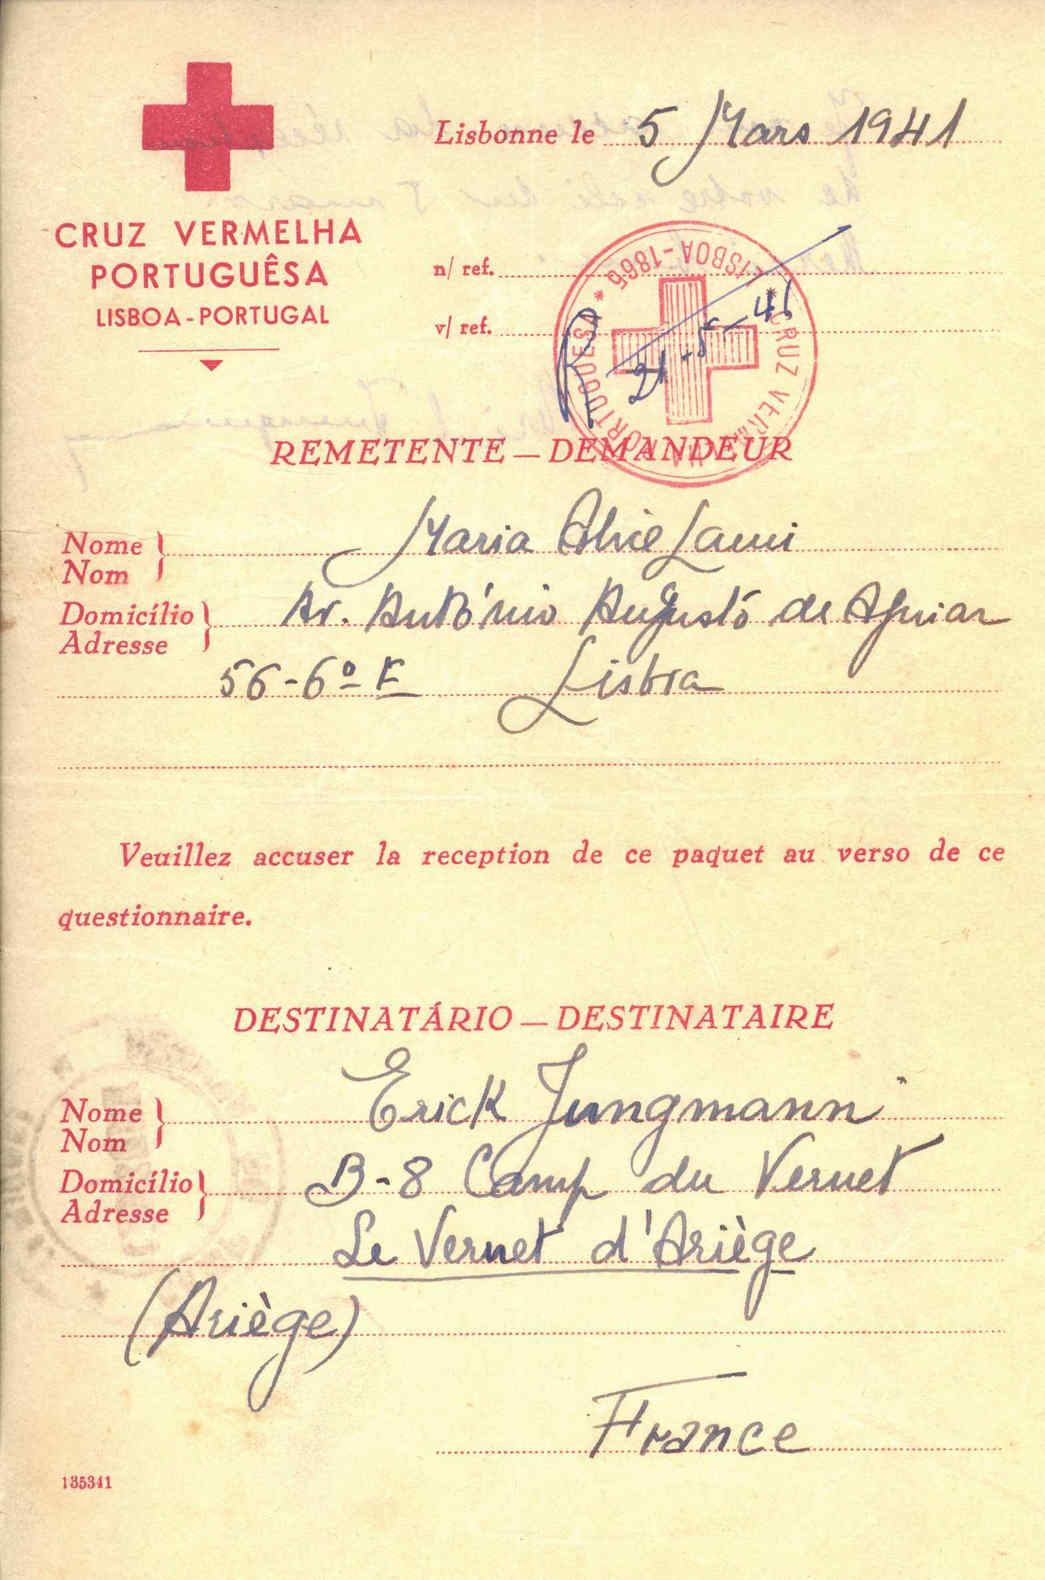 CRUZ VERMELHA
PORTUGUÊSA
LISBOA-PORTUGAL
Lisbonne le 5 Mars 1941
n/ ref.
v/ ref.
CRUZ VERMELHA PORTUGUESA * LISBOA-1865 *
21-5-41
REMETENTE — DEMANDEUR
Nome
Nom
Maria Alice Lami
Domicílio
Adresse
Av. António Augusto de Aguiar
56-6º E Lisboa
Veuillez accuser la reception de ce paquet au verso de ce
questionnaire.
DESTINATÁRIO — DESTINATAIRE
Nome
Nom
Erick Jungmann
Domicílio
Adresse
B-8 Camp du Vernet
Le Vernet d'Ariège
(Ariège)
France
135341